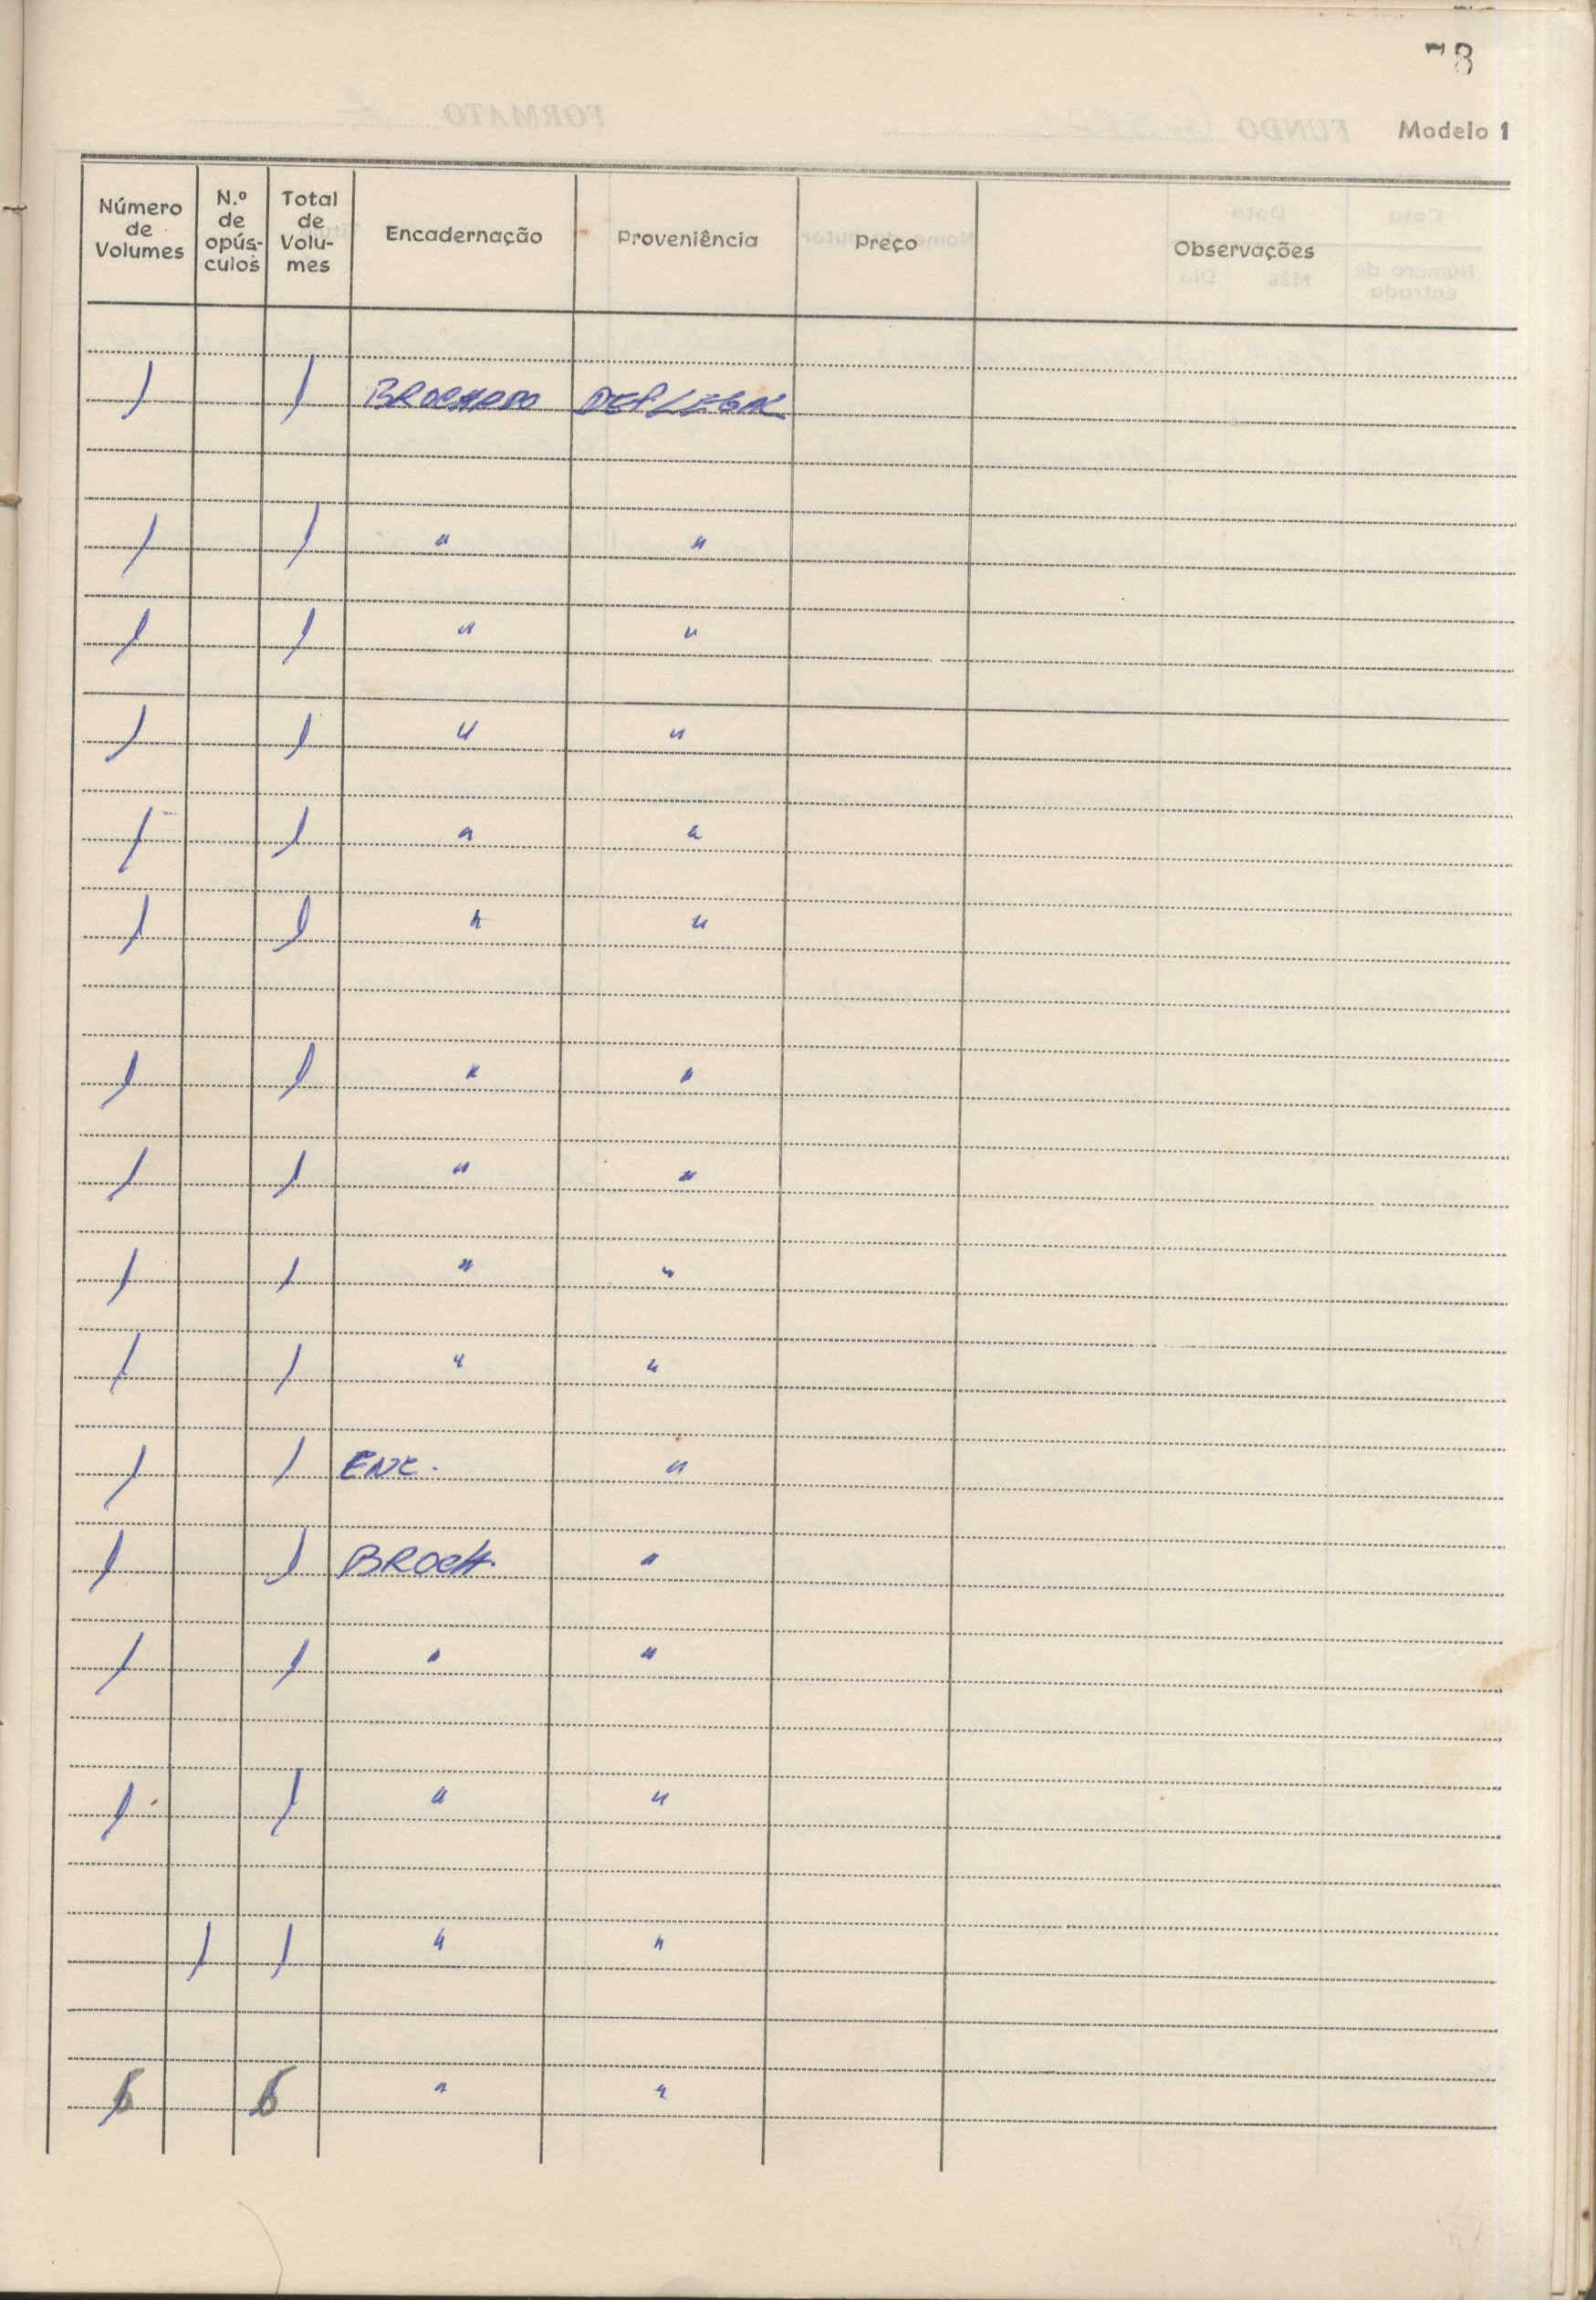 78
Modelo 1
Número de Volumes | N.º de opús-culos | Total de Volu-mes | Encadernação | Proveniência | Preço | Observações
1 | | 1 | BROCHADO | DEP. LEGAL
1 | | 1 | " | "
1 | | 1 | " | "
1 | | 1 | " | "
1 | | 1 | " | "
1 | | 1 | " | "
1 | | 1 | " | "
1 | | 1 | " | "
1 | | 1 | " | "
1 | | 1 | " | "
1 | | 1 | ENC. | "
1 | | 1 | BROCH. | "
1 | | 1 | " | "
1 | | 1 | " | "
| 1 | 1 | " | "
6 | | 6 | " | "